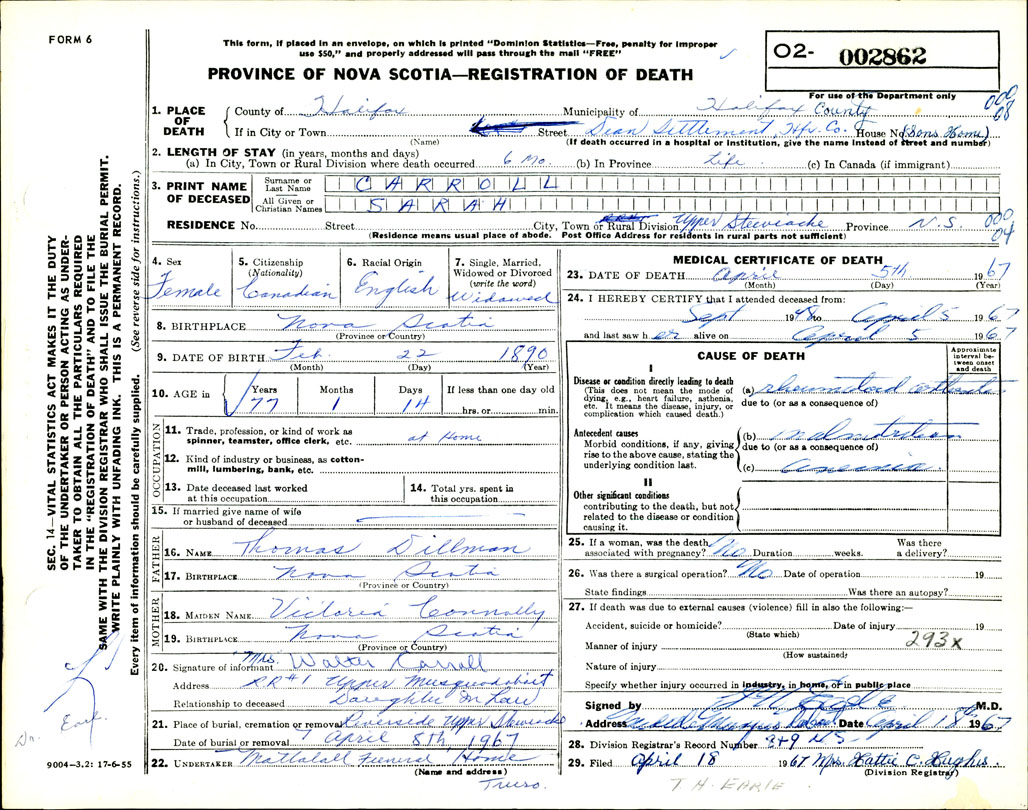 FORM 6
This form, if placed in an envelope, on which is printed "Dominion Statistics—Free, penalty for improper
use $50," and properly addressed will pass through the mail "FREE"
PROVINCE OF NOVA SCOTIA—REGISTRATION OF DEATH
02- 002862
For use of the Department only
1. PLACE OF DEATH
County of Halifax Municipality of Halifax County
000 08
If in City or Town Street Dean Settlement, Hfx. Co. House No (Sons Home)
(Name) (If death occurred in a hospital or institution, give the name instead of street and number)
2. LENGTH OF STAY (in years, months and days)
(a) In City, Town or Rural Division where death occurred 6 Mo. (b) In Province Life (c) In Canada (if immigrant)
3. PRINT NAME OF DECEASED
Surname or Last Name CARROLL
All Given or Christian Names SARAH
RESIDENCE No. Street City, Town or Rural Division Upper Stewiacke Province N.S. 000 04
(Residence means usual place of abode. Post Office Address for residents in rural parts not sufficient)
4. Sex Female
5. Citizenship (Nationality) Canadian
6. Racial Origin English
7. Single, Married, Widowed or Divorced (write the word) Widowed
8. BIRTHPLACE Nova Scotia
(Province or Country)
9. DATE OF BIRTH Feb. 22 1890
(Month) (Day) (Year)
10. AGE in Years 77 Months 1 Days 14 If less than one day old hrs. or min.
OCCUPATION
11. Trade, profession, or kind of work as
spinner, teamster, office clerk, etc. at Home
12. Kind of industry or business, as cotton-
mill, lumbering, bank, etc.
13. Date deceased last worked
at this occupation
14. Total yrs. spent in
this occupation
15. If married give name of wife
or husband of deceased
FATHER
16. NAME Thomas Dillman
17. BIRTHPLACE Nova Scotia
(Province or Country)
MOTHER
18. MAIDEN NAME Victoria Connolly
19. BIRTHPLACE Nova Scotia
(Province or Country)
20. Signature of informant Mrs. Walter Carroll
Address RR#1 Upper Musquodoboit
Relationship to deceased Daughter In Law
21. Place of burial, cremation or removal Riverside Upper Stewiacke
Date of burial or removal April 8th, 1967
22. UNDERTAKER Mattatall Funeral Home
(Name and address)
Truro.
MEDICAL CERTIFICATE OF DEATH
23. DATE OF DEATH April 5th 1967
(Month) (Day) (Year)
24. I HEREBY CERTIFY that I attended deceased from:
Sept 1948 to April 5 1967
and last saw her alive on April 5 1967
CAUSE OF DEATH
Approximate interval between onset and death
I
Disease or condition directly leading to death
(This does not mean the mode of
dying, e.g., heart failure, asthenia,
etc. It means the disease, injury, or
complication which caused death.)
(a) rheumatoid arthritis
due to (or as a consequence of)
Antecedent causes
Morbid conditions, if any, giving
rise to the above cause, stating the
underlying condition last.
(b) malnutrition
due to (or as a consequence of)
(c) anemia
II
Other significant conditions
contributing to the death, but not
related to the disease or condition
causing it.
25. If a woman, was the death
associated with pregnancy? No Duration weeks. Was there
a delivery?
26. Was there a surgical operation? No Date of operation 19
State findings Was there an autopsy?
27. If death was due to external causes (violence) fill in also the following:—
Accident, suicide or homicide? Date of injury 19
(State which)
Manner of injury 293x
(How sustained)
Nature of injury
Specify whether injury occurred in industry, in home, or in public place
Signed by M.D.
Address Date April 18th 1967
28. Division Registrar's Record Number
29. Filed April 18 1967 Mrs. Hattie C. Hughes.
(Division Registrar)
T.H. EARLE
SEC. 14—VITAL STATISTICS ACT MAKES IT THE DUTY
OF THE UNDERTAKER OR PERSON ACTING AS UNDER-
TAKER TO OBTAIN ALL THE PARTICULARS REQUIRED
IN THE "REGISTRATION OF DEATH" AND TO FILE THE
SAME WITH THE DIVISION REGISTRAR WHO SHALL ISSUE THE BURIAL PERMIT.
WRITE PLAINLY WITH UNFADING INK. THIS IS A PERMANENT RECORD.
Every item of information should be carefully supplied. (See reverse side for instructions.)
Dr. Earle
9004—3.2: 17-6-55